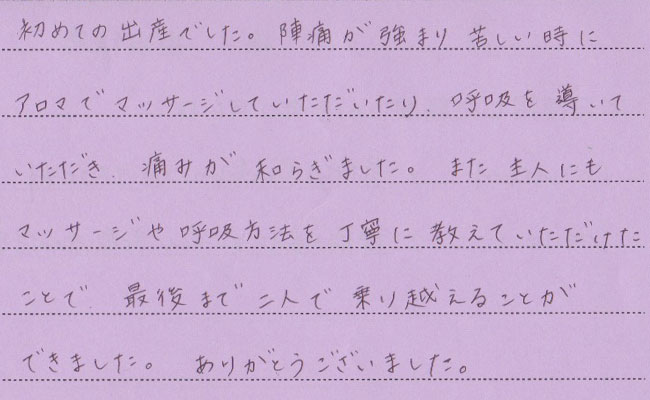 初めての出産でした。陣痛が強まり苦しい時に
アロマでマッサージしていただいたり、呼吸を導いて
いただき、痛みが和らぎました。また主人にも
マッサージや呼吸方法を丁寧に教えていただけた
ことで 最後まで二人で乗り越えることが
できました。 ありがとうございました。